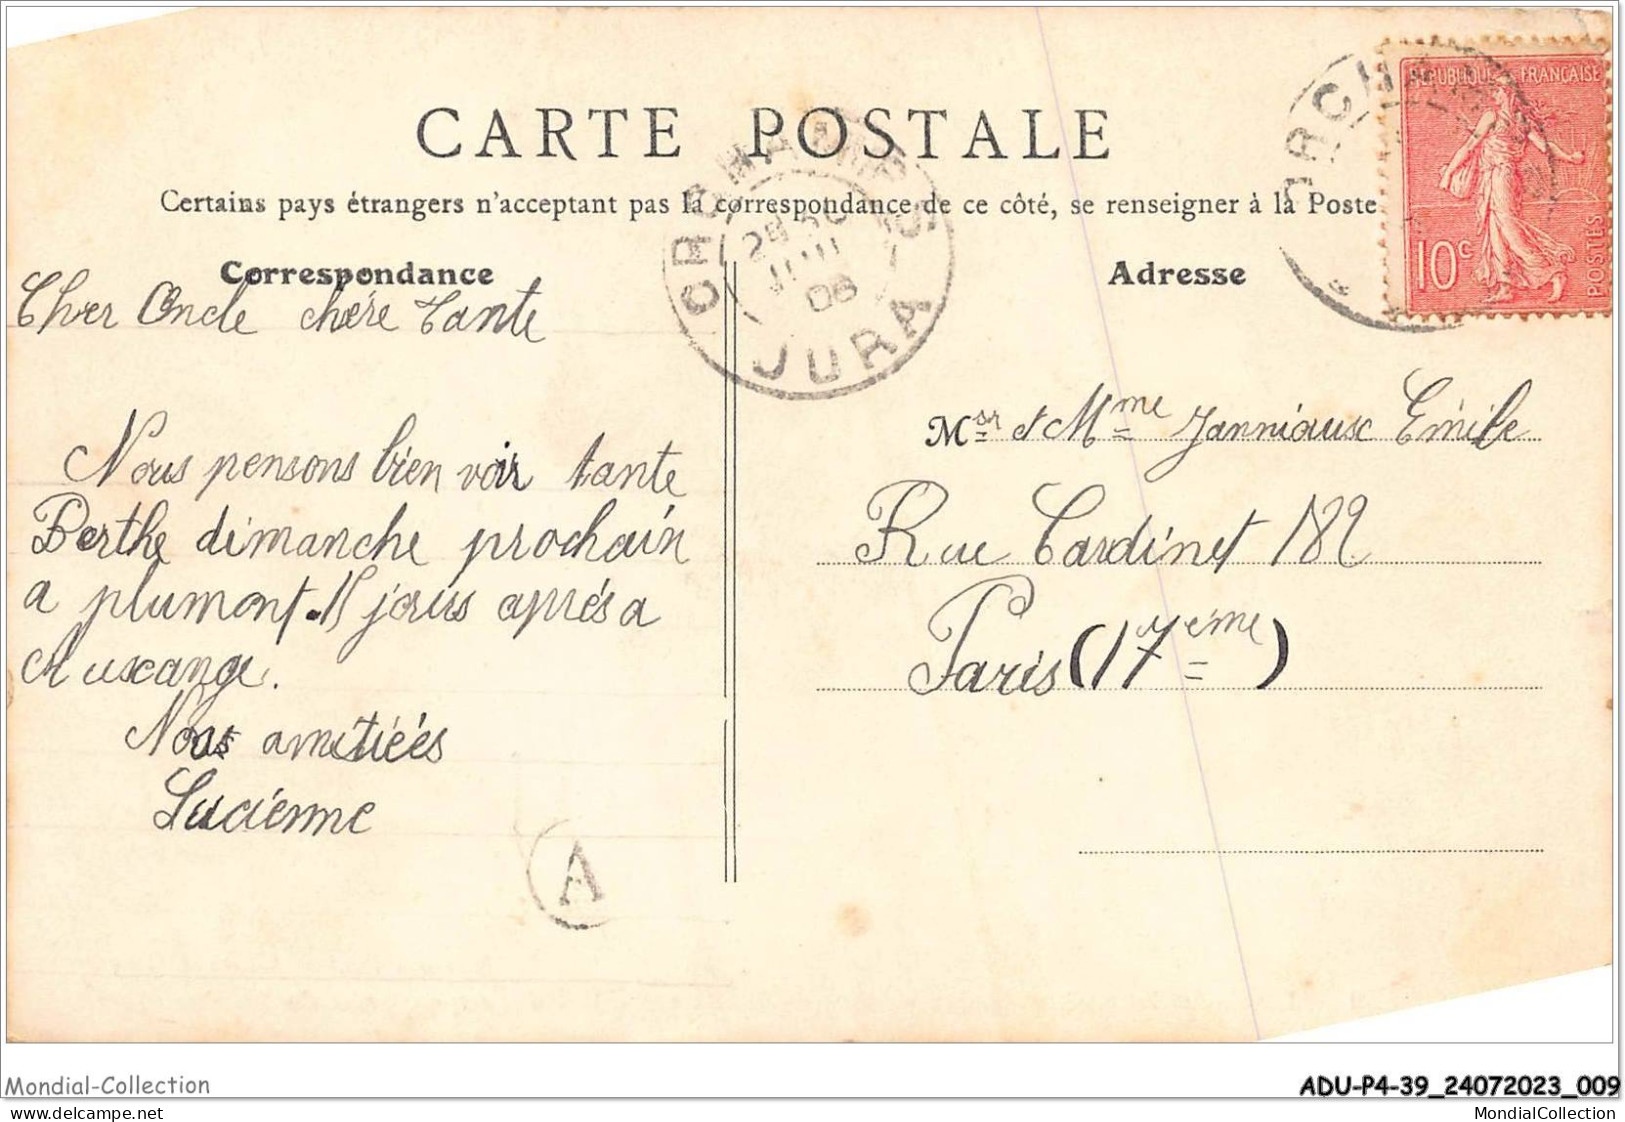 CARTE POSTALE
Certains pays étrangers n'acceptant pas la correspondance de ce côté, se renseigner à la Poste
Correspondance
Adresse
RÉPUBLIQUE FRANÇAISE
10c
POSTES
ORCHAMPS
28
JUIL
08
JURA
ORCHAMPS
Cher Oncle chère Tante
Nous pensons bien voir tante
Berthe dimanche prochain
a plumont. 15 jours après a
Auxange.
Nos amitiées
Lucienne
A
Msr et Mme Janniaux Emile
Rue Cardinet 182
Paris (17ème)
Mondial-Collection
ADU-P4-39_24072023_009
delcampe.net
MondialCollection